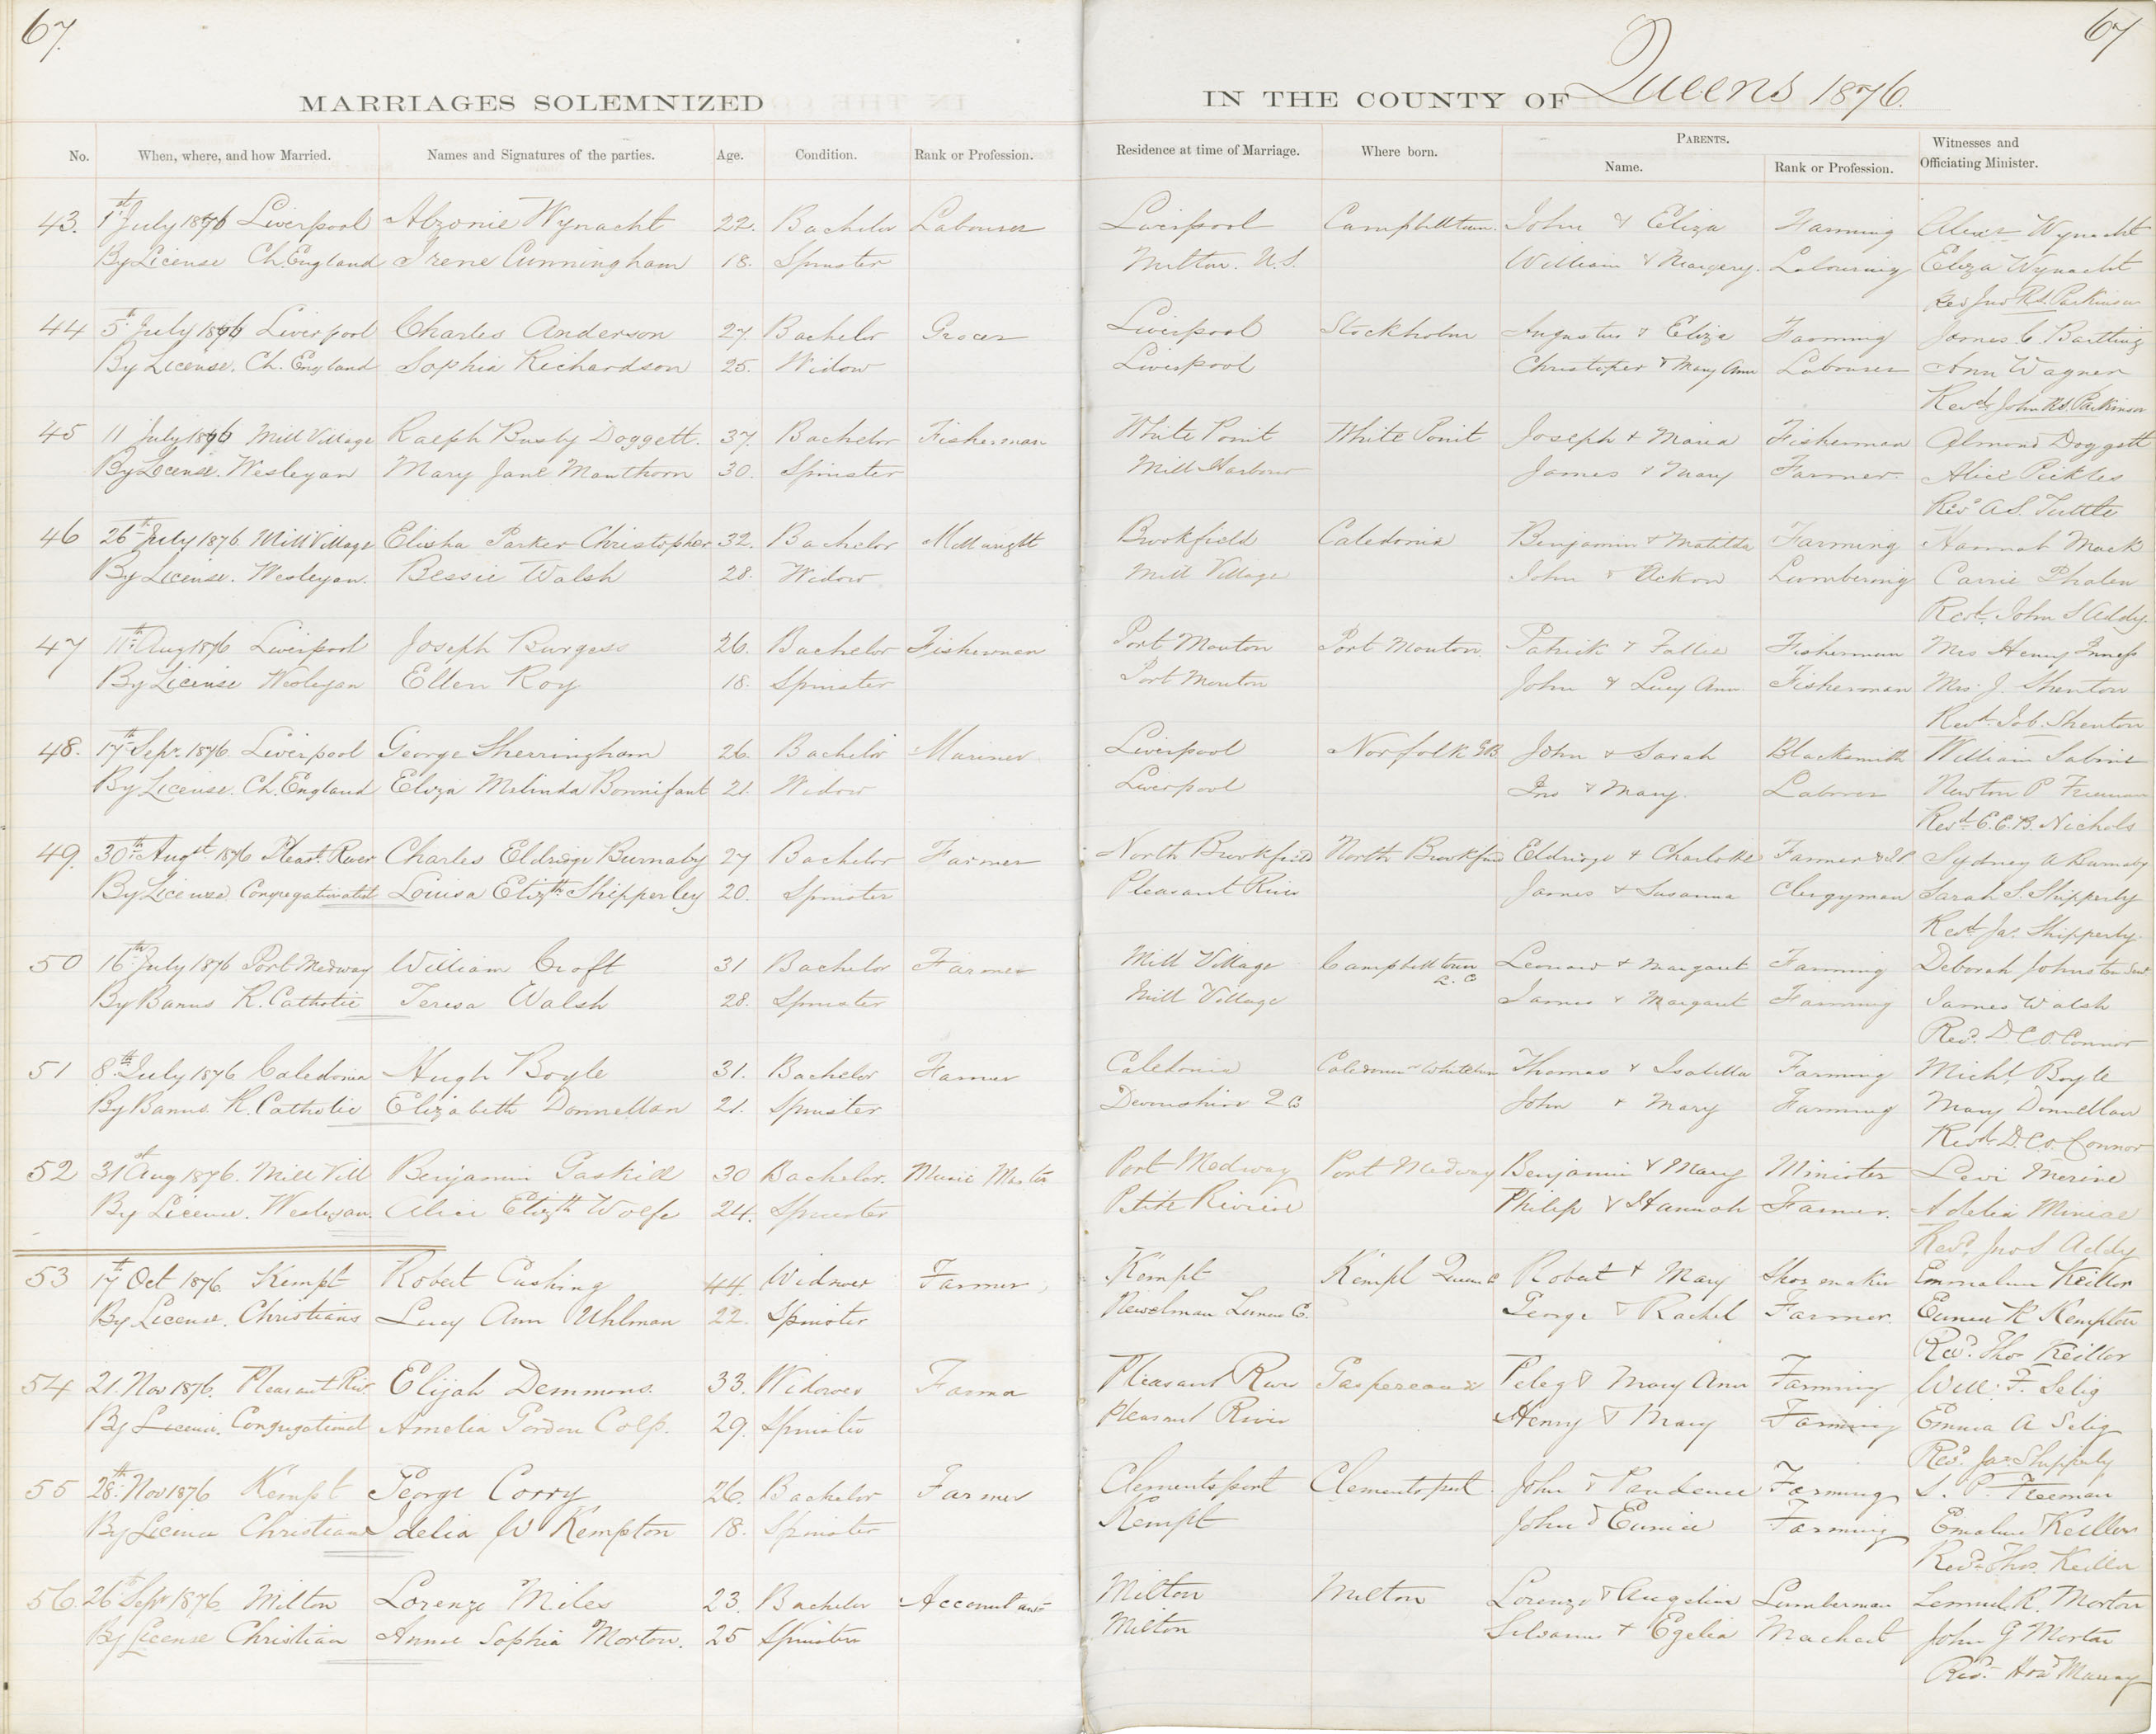 67.
67
MARRIAGES SOLEMNIZED
IN THE COUNTY OF Queens 1876.
No. When, where, and how Married. Names and Signatures of the parties. Age. Condition. Rank or Profession. Residence at time of Marriage. Where born. PARENTS. Name. Rank or Profession. Witnesses and Officiating Minister.
43. 1st July 1876 Liverpool Alzonie Wynacht 22. Bachelor Labourer Liverpool Campbelltown. John & Eliza Farming Alexr Wynacht
By License Ch. England Irene Cunningham 18. Spinster Milton. N.S. William & Margery. Labouring Eliza Wynacht
Rev Jno Rd. Parkinson
44 5th July 1876 Liverpool Charles Anderson 27. Bachelor Grocer Liverpool Stockholm Augustus & Eliza Farming James C. Bartling
By License. Ch. England Sophia Richardson 25. Widow Liverpool Christoper & Mary Ann Labourer Ann Wagner
Revd John Rd. Parkinson
45 11 July 1876 Mill Village Ralph Busby Doggett. 37. Bachelor Fisherman White Point White Point Joseph & Maria Fisherman Almond Doggett
By License. Wesleyan Mary Jane Manthorn 30. Spinster Mill Harbour James & Mary Farmer. Alice Pickles
Revd A S. Tuttle
46 26th July 1876 Mill Village Elisha Parker Christopher 32. Bachelor Millwright Brookfield Caledonia Benjamin & Matilda Farming Hannah Mack
By License. Wesleyan. Bessie Walsh 28. Widow Mill Village John & Lumbering Carrie Phalen
Revd. John S Addy.
47 11th Aug 1876 Liverpool Joseph Burgess 26. Bachelor Fisherman Port Mouton Port Mouton. Patrick & Fisherman Mrs Henry Inness
By License Wesleyan Ellen Roy 18. Spinster Port Mouton John & Lucy Ann. Fisherman Mrs. J. Shenton
Revd. Job. Shenton
48. 17th Sepr. 1876 Liverpool George Sherringham 26. Bachelor Mariner Liverpool Norfolk G.B. John & Sarah Blacksmith William Sabine
By License. Ch. England Eliza Melinda Bonnifant 21. Widow Liverpool Jno & Mary. Laborer Newton P Freeman
Revd E.E.B. Nichols
49. 30th Augst. 1876 Pleast. River Charles Eldridge Burnaby 27 Bachelor Farmer North Brookfield North Brookfield Eldridge & Charlotte Farmer & J.P. Sydney A Burnaby
By License Congregationalist Louisa Elizth Shipperley 20. Spinster Pleasant River James & Susanna Clergyman Sarah S. Shipperly
Revd. Jas. Shipperly.
50 16th July 1876 Port Medway William Croft 31 Bachelor Farmer Mill Village Campbelltown Q. C Leonard & Margaret Farming Deborah Johnston
By Banns R. Catholic Teresa Walsh 28. Spinster Mill Village James & Margaret Farming James Walsh
Revd. D C O. Connor
51 8th July 1876 Caledonia Hugh Boyle 31. Bachelor Farmer Caledonia Caledonia Thomas & Isabella Farming Michl. Boyle
By Banns R. Catholic Elizabeth Donnellan 21. Spinster Devonshire Q Co John & Mary Farming Mary Donnellan
Revd. D. C. O. Connor
52 31st Aug 1876. Mill Vill Benjamin Gaskill 30 Bachelor. Music Master Port Medway Port Medway Benjamin & Mary Minister Levi Merine
By License. Wesleyan. Alice Elizth Wolfe 24. Spinster Petite Riviere Philip & Hannah Farmer. Adelia
Revd. Jno S Addy
53 17th Oct 1876. Kempt Robert Cushing 44. Widower Farmer, Kempt Kempt Queens C Robert & Mary Shoemaker Emmaline Keillor
By License. Christians Lucy Ann Uhlman 22. Spinster Lunen C. George & Rachel Farmer. Eunice R Kempton
Revd. Thos Keillor
54 21. Nov 1876. Pleasant Riv. Elijah Demmons. 33. Widower Farmer Pleasant River Gaspereaux Peleg & Mary Ann Farming Will: F. Selig
By License. Congregational Amelia Gordon Colp. 29. Spinster Pleasant River Henry & Mary Farming Emma A Selig
Revd. Jas Shipperly
55 28th Nov 1876 Kempt George Corry 26. Bachelor Farmer Clementsport Clementsport John & Prudence Farming S. P. Freeman
By License Christians Idelia W Kempton 18. Spinster Kempt John & Eunice Farming Emaline Keillor
Revd. Thos. Keillor
56. 26th Sepr 1876. Milton Lorenzo Miles 23. Bachelor Accountant Milton Milton Lorenzo & Angelina Lumberman Lemuel R. Morton
By License Christian Annie Sophia Morton. 25 Spinster Milton Silvanus & Egelia John G Morton
Revd. Howd Murray